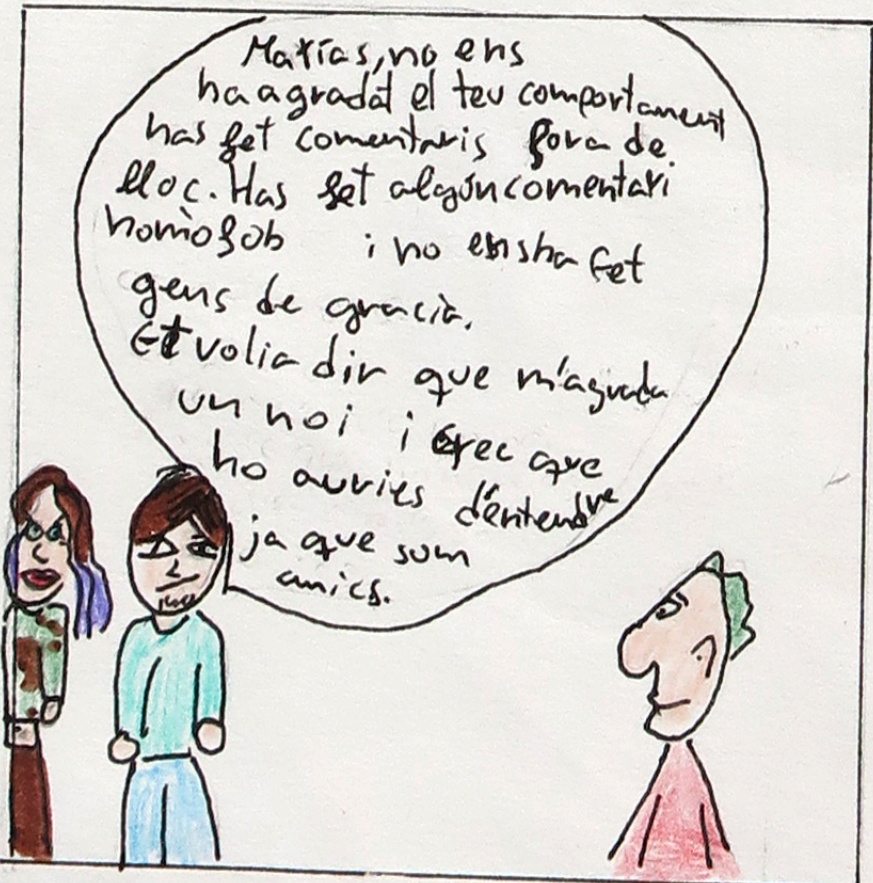 Matías, no ens
ha agradat el teu comportament
has fet comentaris fora de
lloc. Has fet algún comentari
homòfob i no ens ha fet
gens de gracia.
Et volia dir que m'agrada
un noi i crec que
ho auries d'entendre
ja que som
amics.